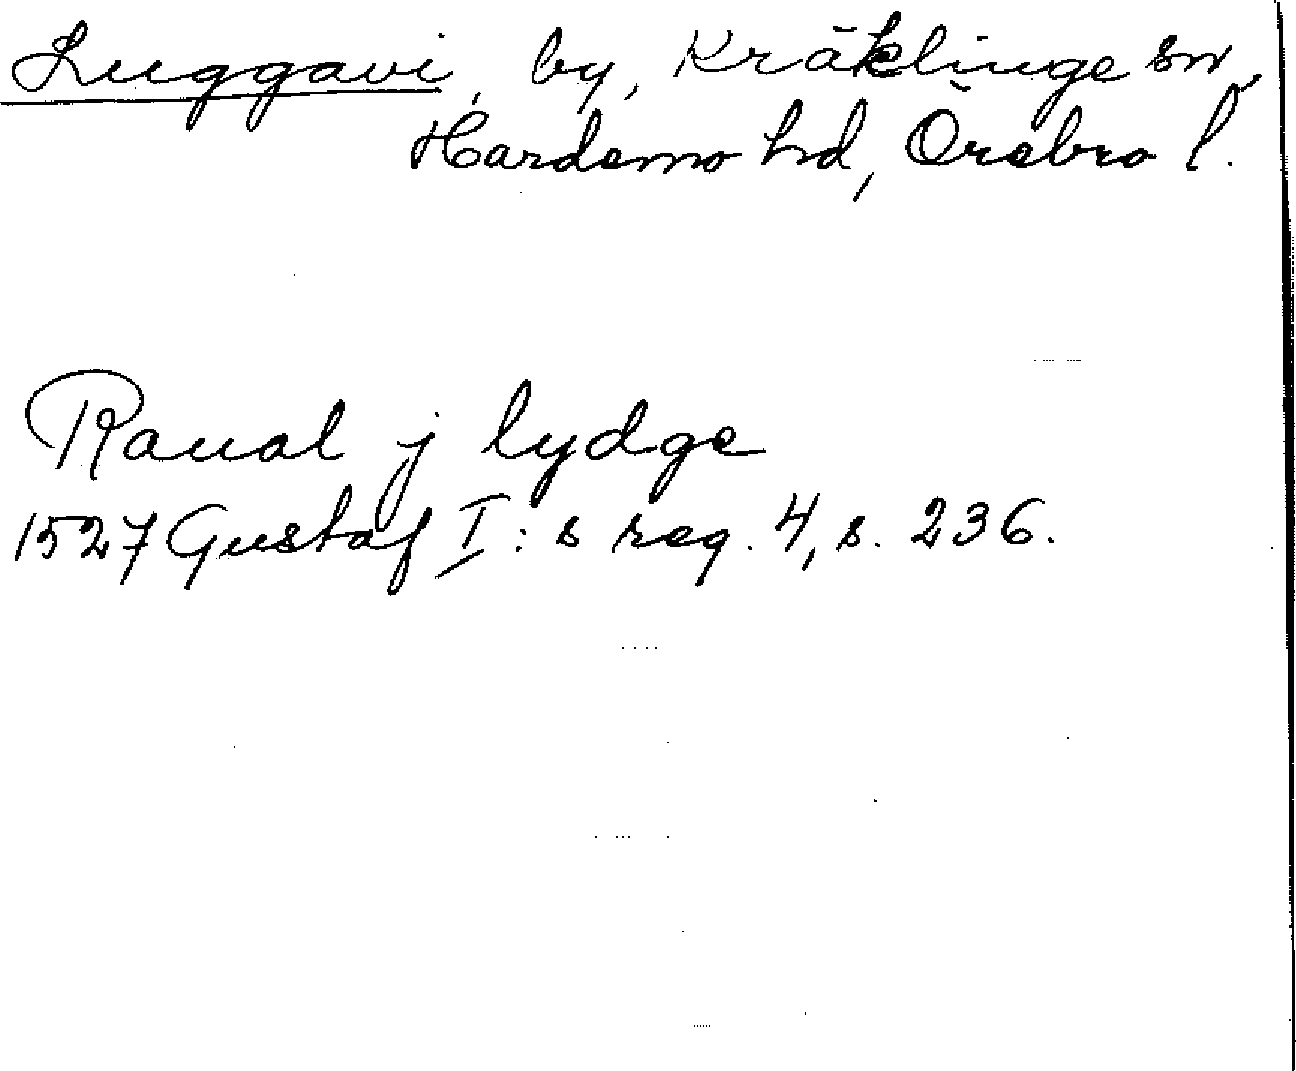 Luggavi, by, Kräklinge sn,
Hardemo hd, Örebro l.
Raual j lydge
1527 Gustaf I:s reg. 4, s. 236.